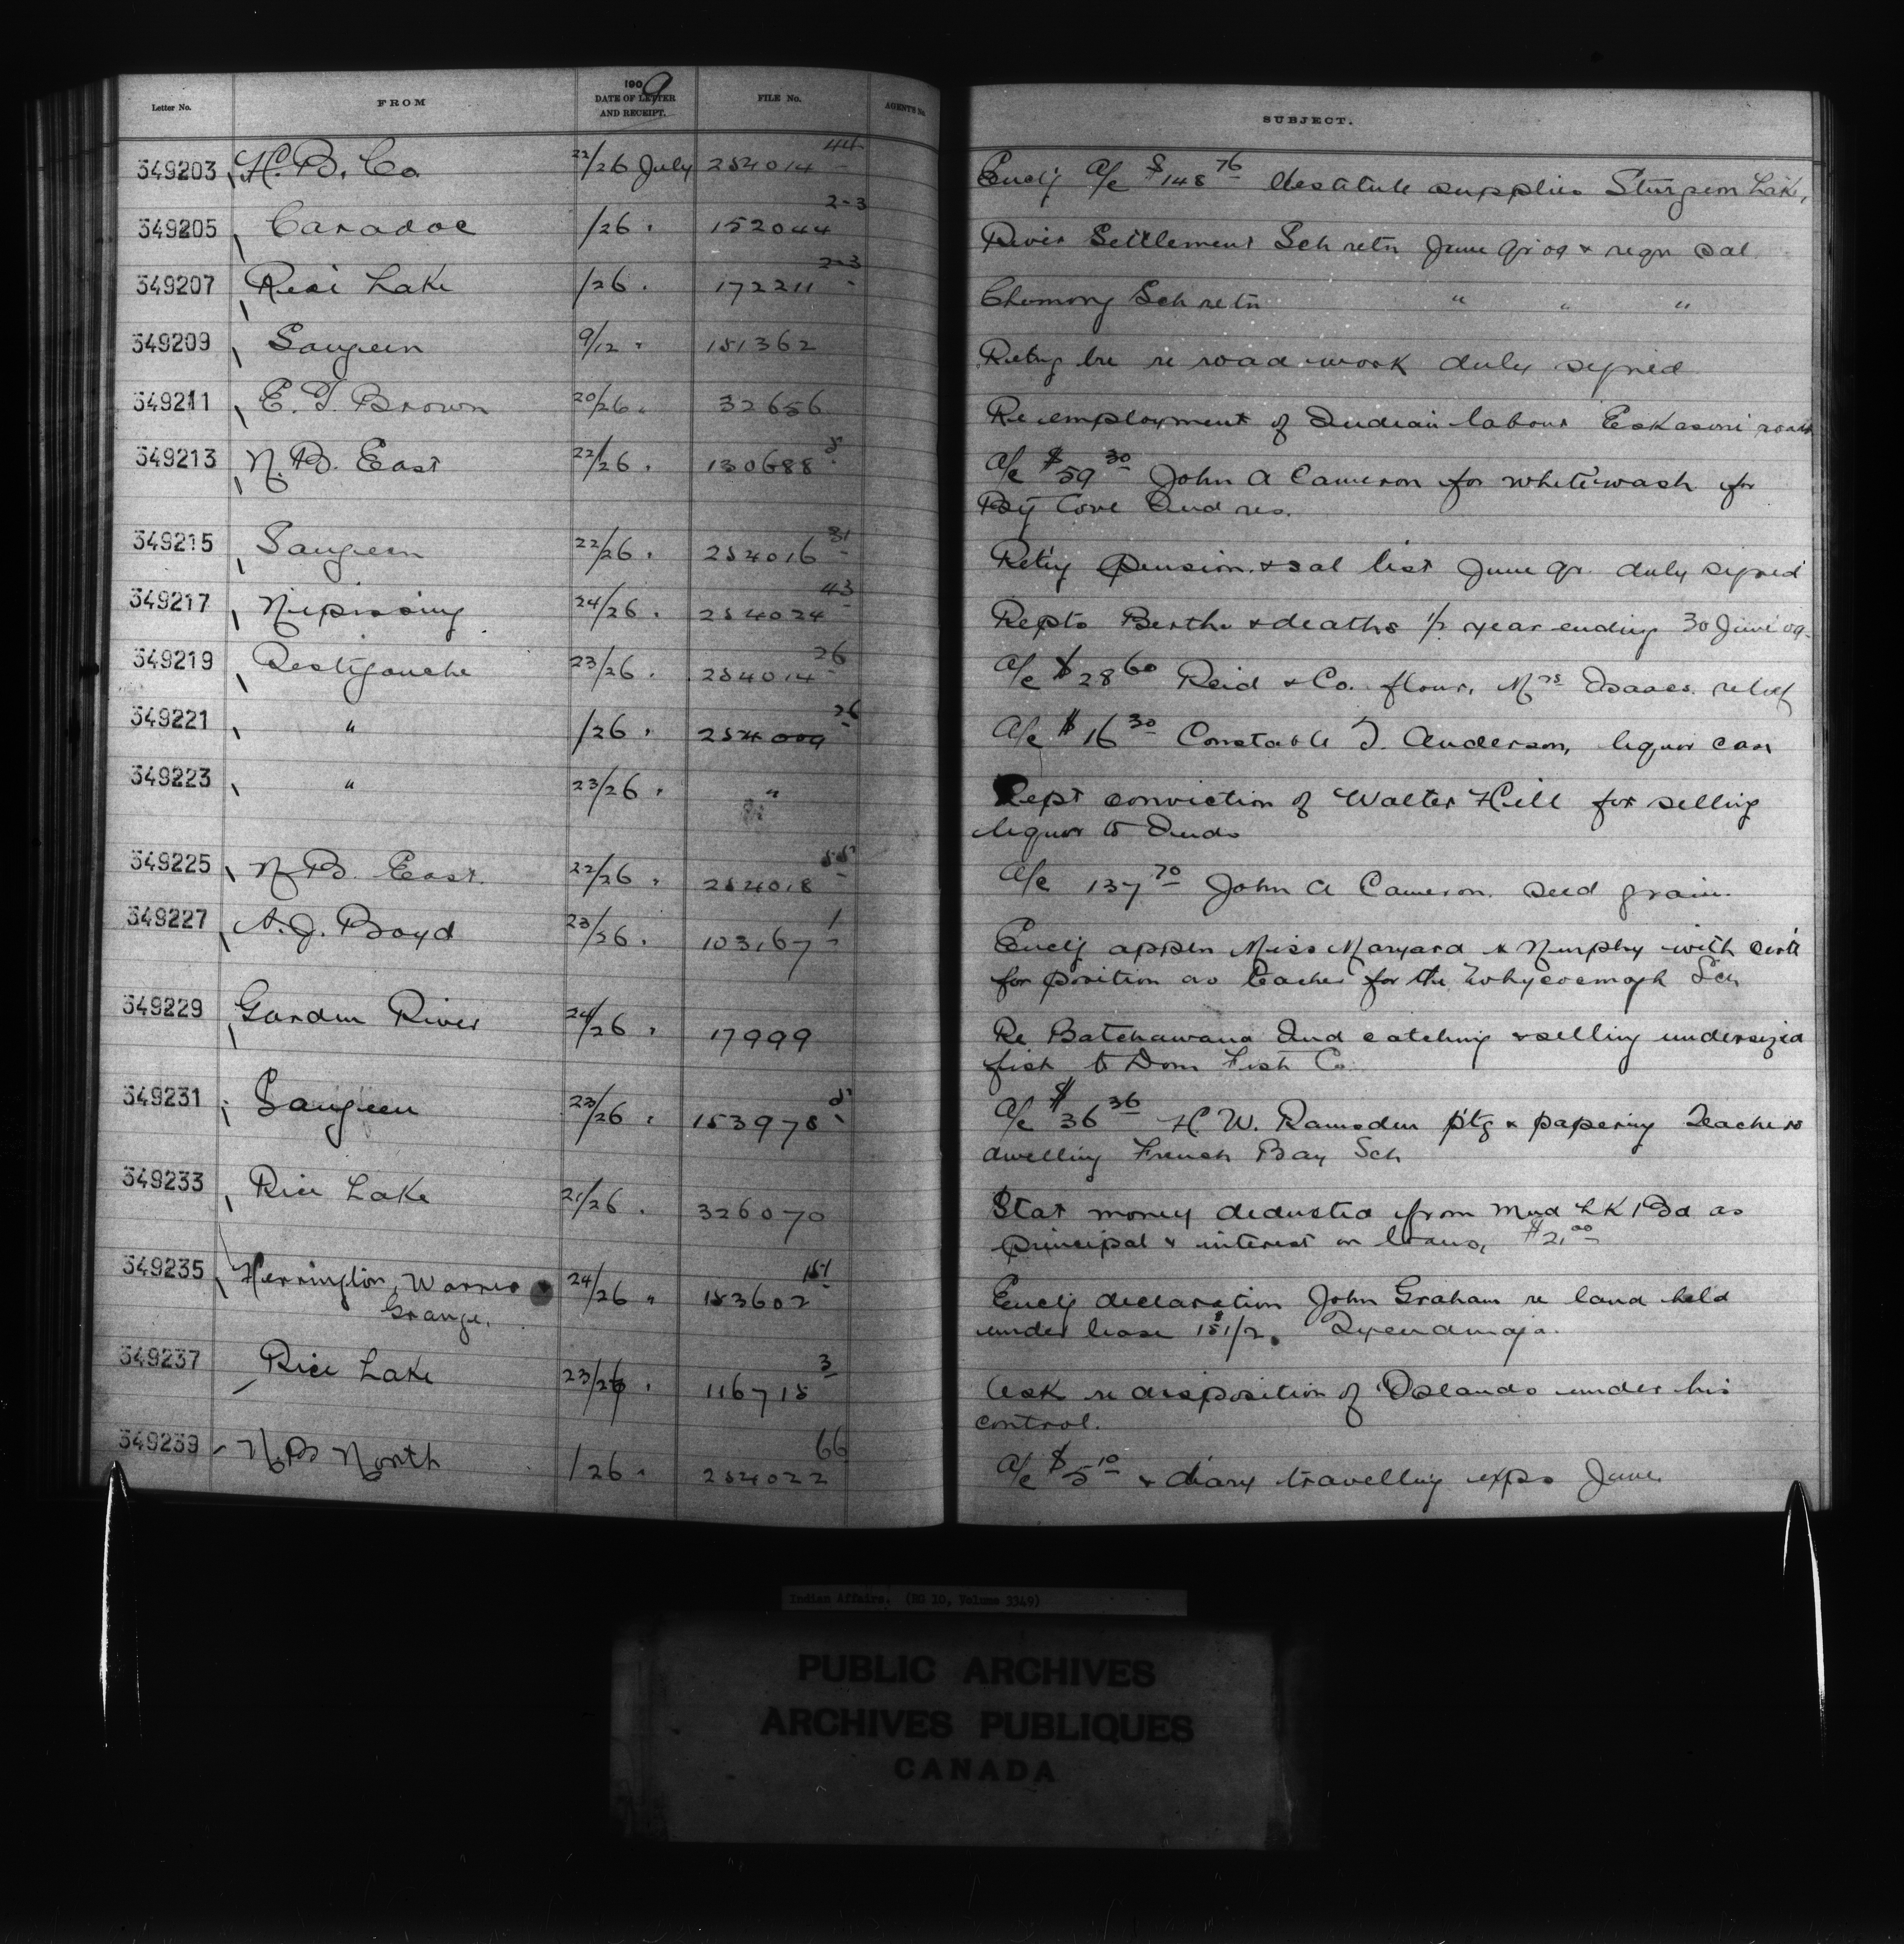 Letter No. FROM 1909 DATE OF LETTER AND RECEIPT. FILE No. AGENT'S No. SUBJECT.
349203 H. B. Co 22/26 July 254014 44 Enclg a/c $148 76 destitute supplies Sturgeon Lake,
349205 Caradoc /26 " 152044 2-3 River Settlement Sch retn June qr 09 & reqn sal
349207 Rice Lake /26 " 172211 2-3 Chemong Sch retn " " "
349209 Saugeen 9/12 " 151362 Retng re road work duly signed
349211 E. J. Brown 20/26 " 32656 Re employment of Indian labour Eskasoni roads
349213 N. B. East 22/26 " 130688 5 a/c $59 30 John A Cameron for whitewash for
Cove Ind res.
349215 Saugeen 22/26 " 254016 31 Retng pension & sal list June qr. duly signed
349217 Nipissing 24/26 " 254024 43 Repts Births & deaths 1/2 year ending 30 June 09
349219 Restigouche 23/26 " 254014 26 a/c $28 60 Reid & Co. flour, Mrs Isaacs relief
349221 " /26 " 254009 26 a/c $16 30 Constable J. Anderson, liquor case
349223 " 23/26 " " Rept conviction of Walter Hill for selling
liquor to Inds
349225 N. B. East 22/26 " 254018 55 a/c 137 70 John A Cameron. seed grain.
349227 A. J. Boyd 23/26 " 103167 1 Enclg appln Miss & Murphy with certs
for position as teacher for the Whycocomagh Sch
349229 Garden River 24/26 " 17999 Re Batchawana Ind catching & selling undersized
fish to Dom Fish Co
349231 Saugeen 23/26 " 153978 5 a/c $36 36 H W. Ramsden ptg & papering Teachers
dwelling French Bay Sch
349233 Rice Lake 21/26 " 326070 Stat money deducted from Mud Lk Bd as
principal & interest on loans, $21 00
349235 Herrington, Warner & Grange. 24/26 " 153602 151 Enclg declaration John Graham re land held
under lease 151/2. Tyendinaga.
349237 Rice Lake 23/26 " 116715 3 Ask re disposition of Islands under his
control.
349239 N B North /26 " 254022 66 a/c $5 10 & diary travelling exps June
Indian Affairs. (RG 10, Volume 3349)
PUBLIC ARCHIVES
ARCHIVES PUBLIQUES
CANADA